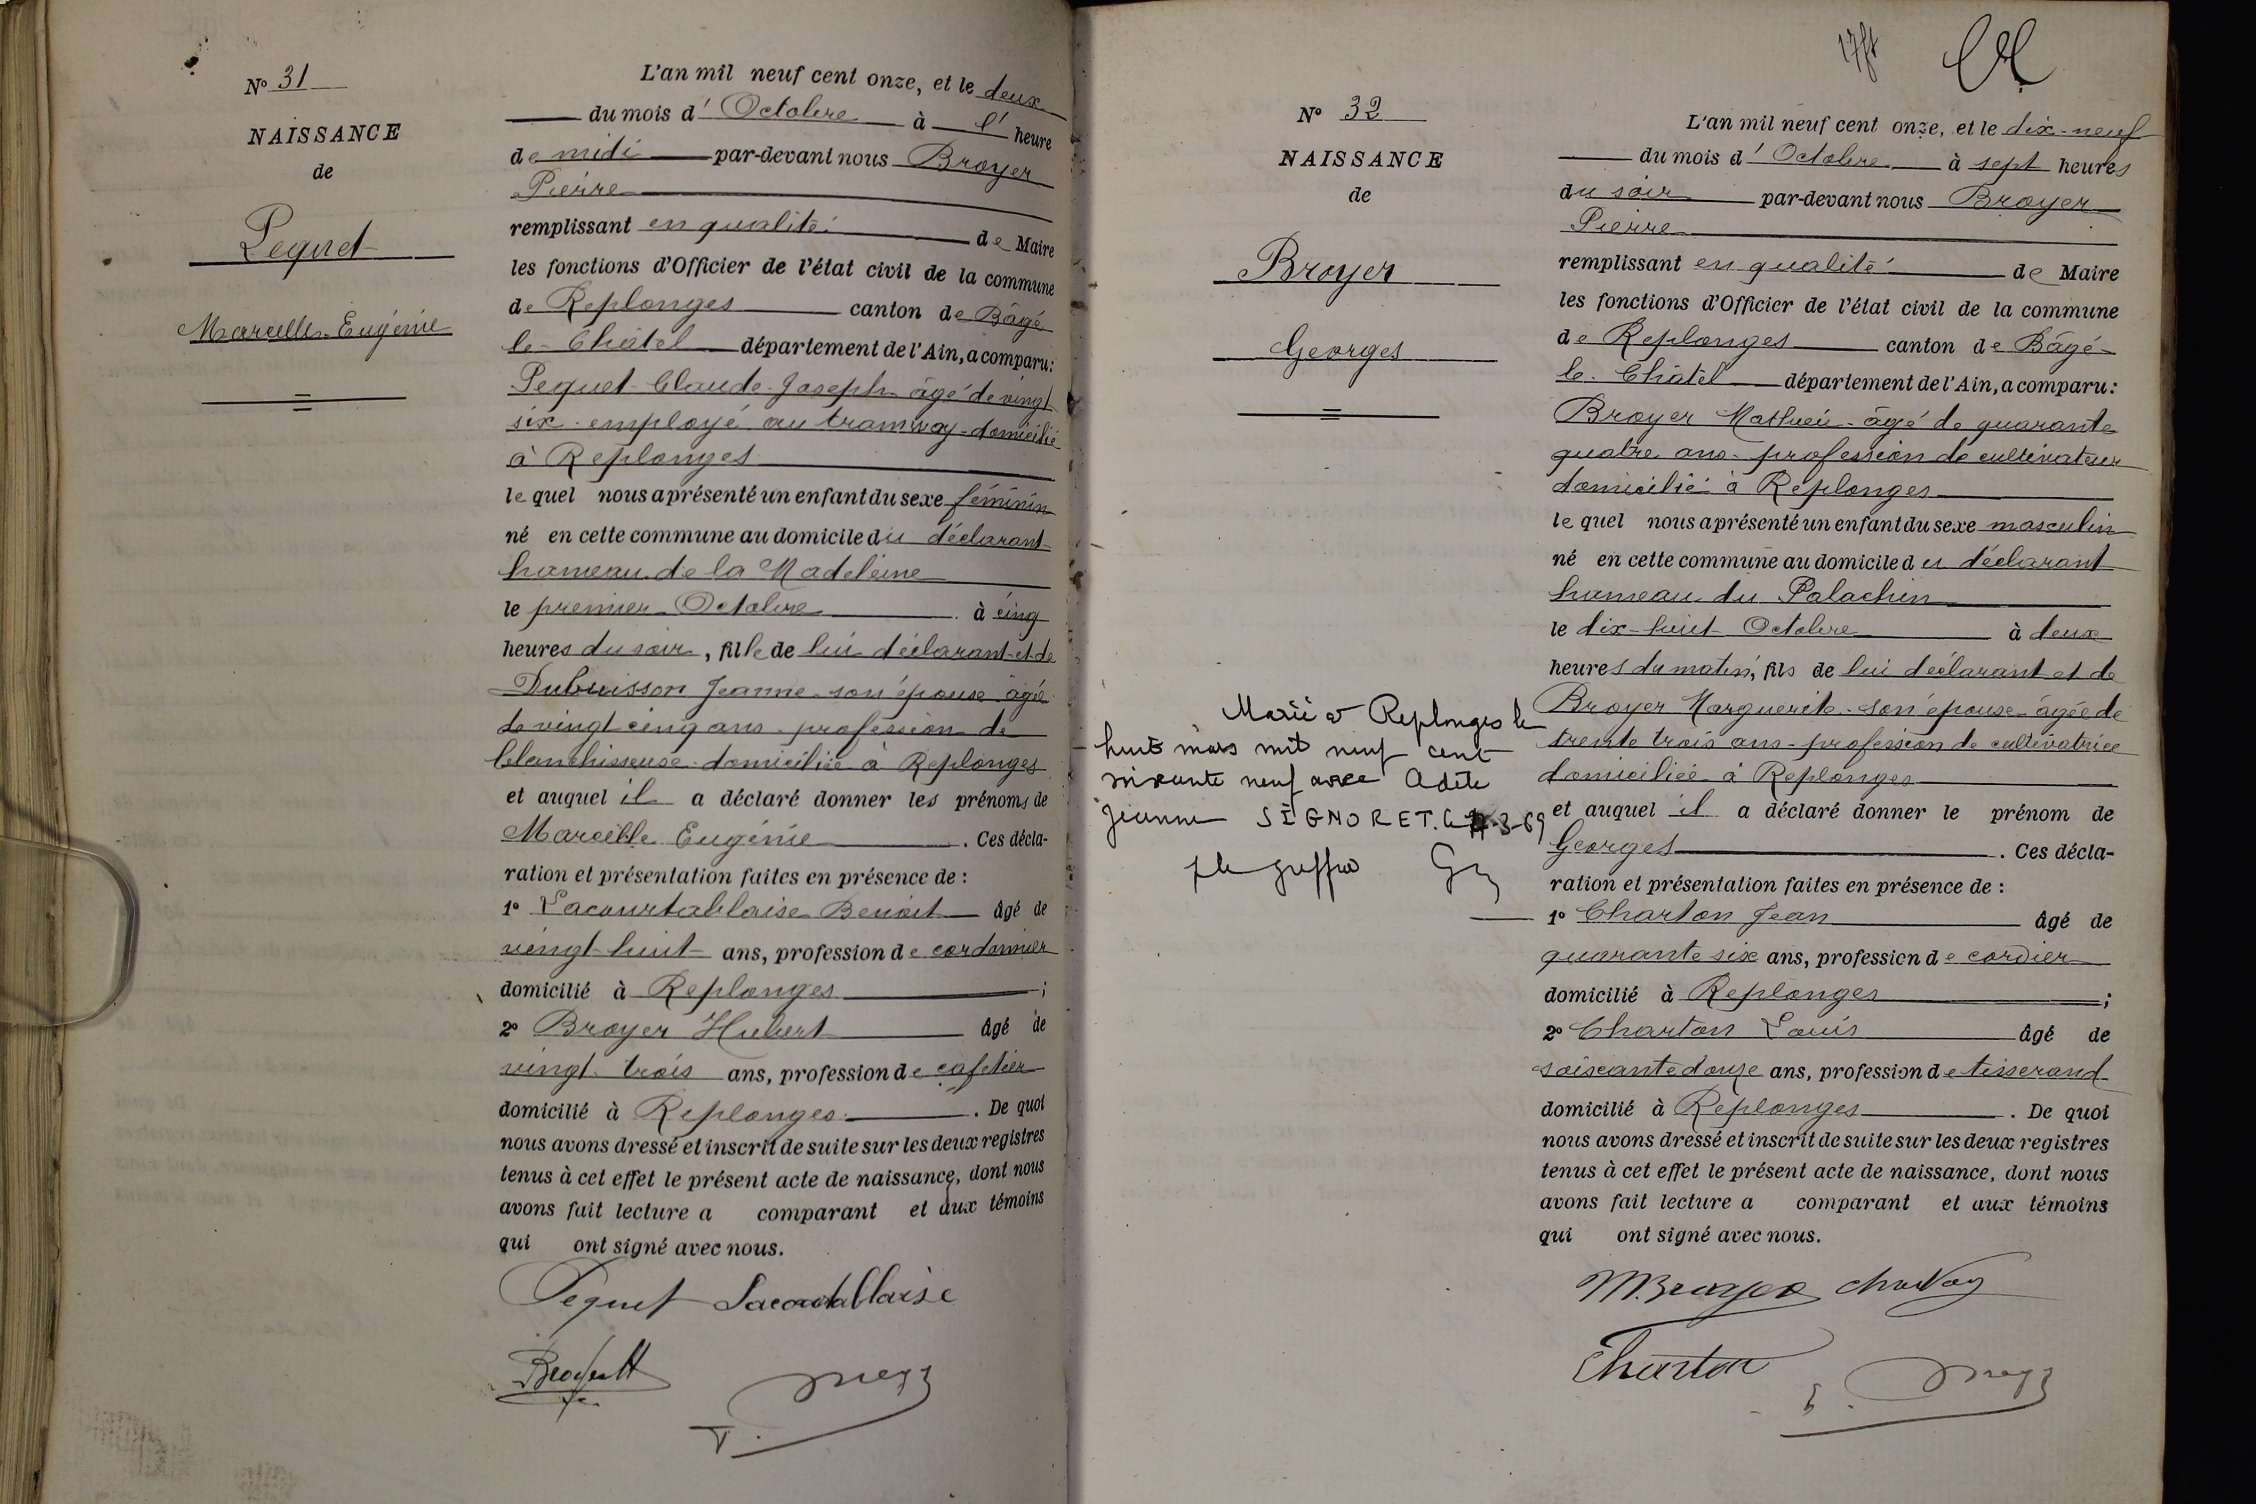 N° 31
NAISSANCE
de
Pequet
Marcelle Eugénie
L'an mil neuf cent onze, et le deux
du mois d' Octobre à l' heure
de midi par-devant nous Broyer
Pierre
remplissant en qualité de Maire
les fonctions d'Officier de l'état civil de la commune
de Replonges canton de Bâgé
le-Châtel département de l'Ain, a comparu:
Pequet Claude Joseph âgé de vingt
six employé au tramway domicilié
à Replonges
le quel nous a présenté un enfant du sexe féminin
né en cette commune au domicile du déclarant
hameau de la Madeleine
le premier Octobre à cinq
heures du soir, fille de lui déclarant et de
Dubuisson Jeanne son épouse âgée
de vingt cinq ans profession de
blanchisseuse domiciliée à Replonges
et auquel il a déclaré donner les prénoms de
Marcelle Eugénie. Ces décla-
ration et présentation faites en présence de :
1° Lacourtablaise Benoit âgé de
vingt huit ans, profession de cordonnier
domicilié à Replonges ;
2° Broyer Hubert âgé de
vingt trois ans, profession de cafetier
domicilié à Replonges. De quoi
nous avons dressé et inscrit de suite sur les deux registres
tenus à cet effet le présent acte de naissance, dont nous
avons fait lecture a comparant et aux témoins
qui ont signé avec nous.
Pequet Lacourtablaise
N° 32
NAISSANCE
de
Broyer
Georges
Marié à Replonges le
huit mars mil neuf cent
soixante neuf avec Adèle
Jeanne SIGNORET. Le -3-69
L'an mil neuf cent onze, et le dix-neuf
du mois d' Octobre à sept heures
du soir par-devant nous Broyer
Pierre
remplissant en qualité de Maire
les fonctions d'Officier de l'état civil de la commune
de Replonges canton de Bâgé-
le-Châtel département de l'Ain, a comparu:
Broyer Mathieu âgé de quarante
quatre ans profession de cultivateur
domicilié à Replonges
le quel nous a présenté un enfant du sexe masculin
né en cette commune au domicile du déclarant
hameau du Palachin
le dix-huit Octobre à deux
heures du matin, fils de lui déclarant et de
Broyer Marguerite son épouse âgée de
trente trois ans profession de cultivatrice
domiciliée à Replonges
et auquel il a déclaré donner le prénom de
Georges. Ces décla-
ration et présentation faites en présence de :
1° Charton Jean âgé de
quarante six ans, profession de cordier
domicilié à Replonges ;
2° Charton Louis âgé de
soixante douze ans, profession de tisserand
domicilié à Replonges. De quoi
nous avons dressé et inscrit de suite sur les deux registres
tenus à cet effet le présent acte de naissance, dont nous
avons fait lecture a comparant et aux témoins
qui ont signé avec nous.
M. Broyer Charton
Charton